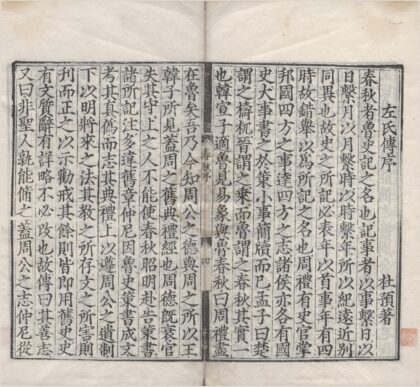 左氏傳序
杜預著
春秋者魯史記之名也記事者以事繫日以
日繫月以月繫時以時繫年所以紀遠近別
同異也故史之所記必表年以首事年有四
時故錯舉以為所記之名也周禮有史官掌
邦國四方之事達四方之志諸侯亦各有國
史大事書之於策小事簡牘而已孟子曰楚
謂之檮杌晉謂之乘而魯謂之春秋其實一
也韓宣子適魯見易象與魯春秋曰周禮盡
在魯矣吾乃今知周公之德與周之所以王
韓子所見蓋周之舊典禮經也周德既衰官
失其守上之人不能使春秋昭明赴告策書
諸所記注多違舊章仲尼因魯史策書成文
考其真偽而志其典禮上以遵周公之遺制
下以明將來之法其教之所存文之所害則
刊而正之以示勸戒其餘則皆即用舊史史
有文質辭有詳略不必改也故傳曰其善志
又曰非聖人孰能脩之蓋周公之志仲尼從